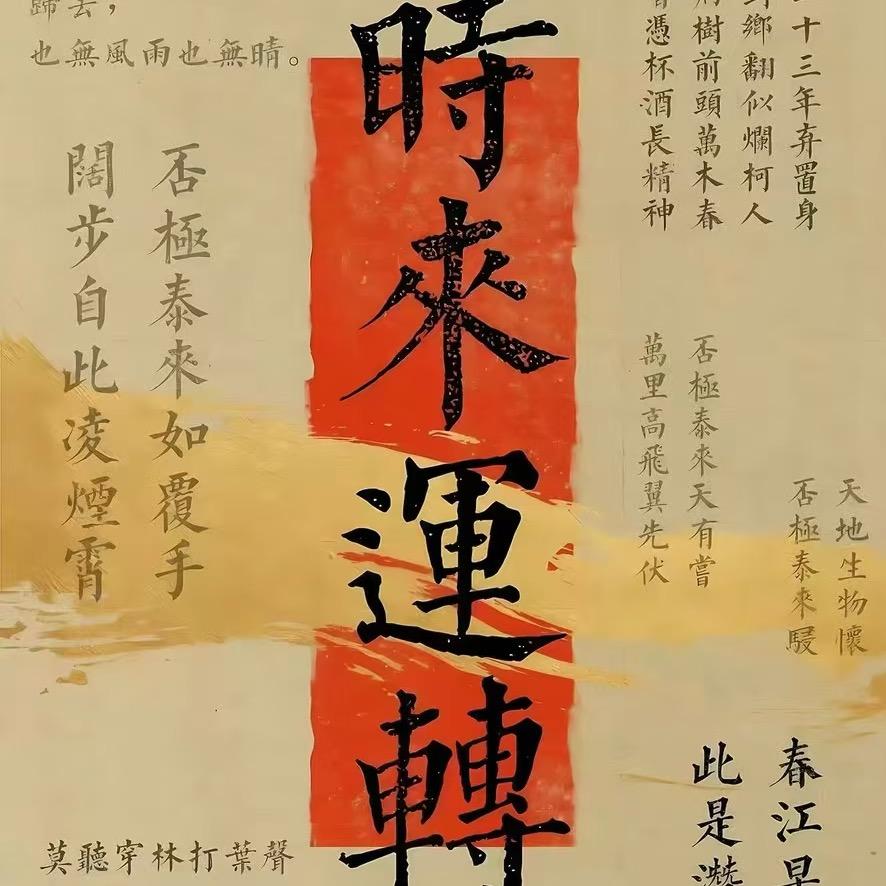 時來運轉
十三年弃置身
鄉翻似爛柯人
樹前頭萬木春
憑杯酒長精神
歸去，
也無風雨也無晴。
否極泰來如覆手
闊步自此凌煙霄
否極泰來天有嘗
萬里高飛翼先伏
天地生物懷
否極泰來
春江
此是
莫聽穿林打葉聲